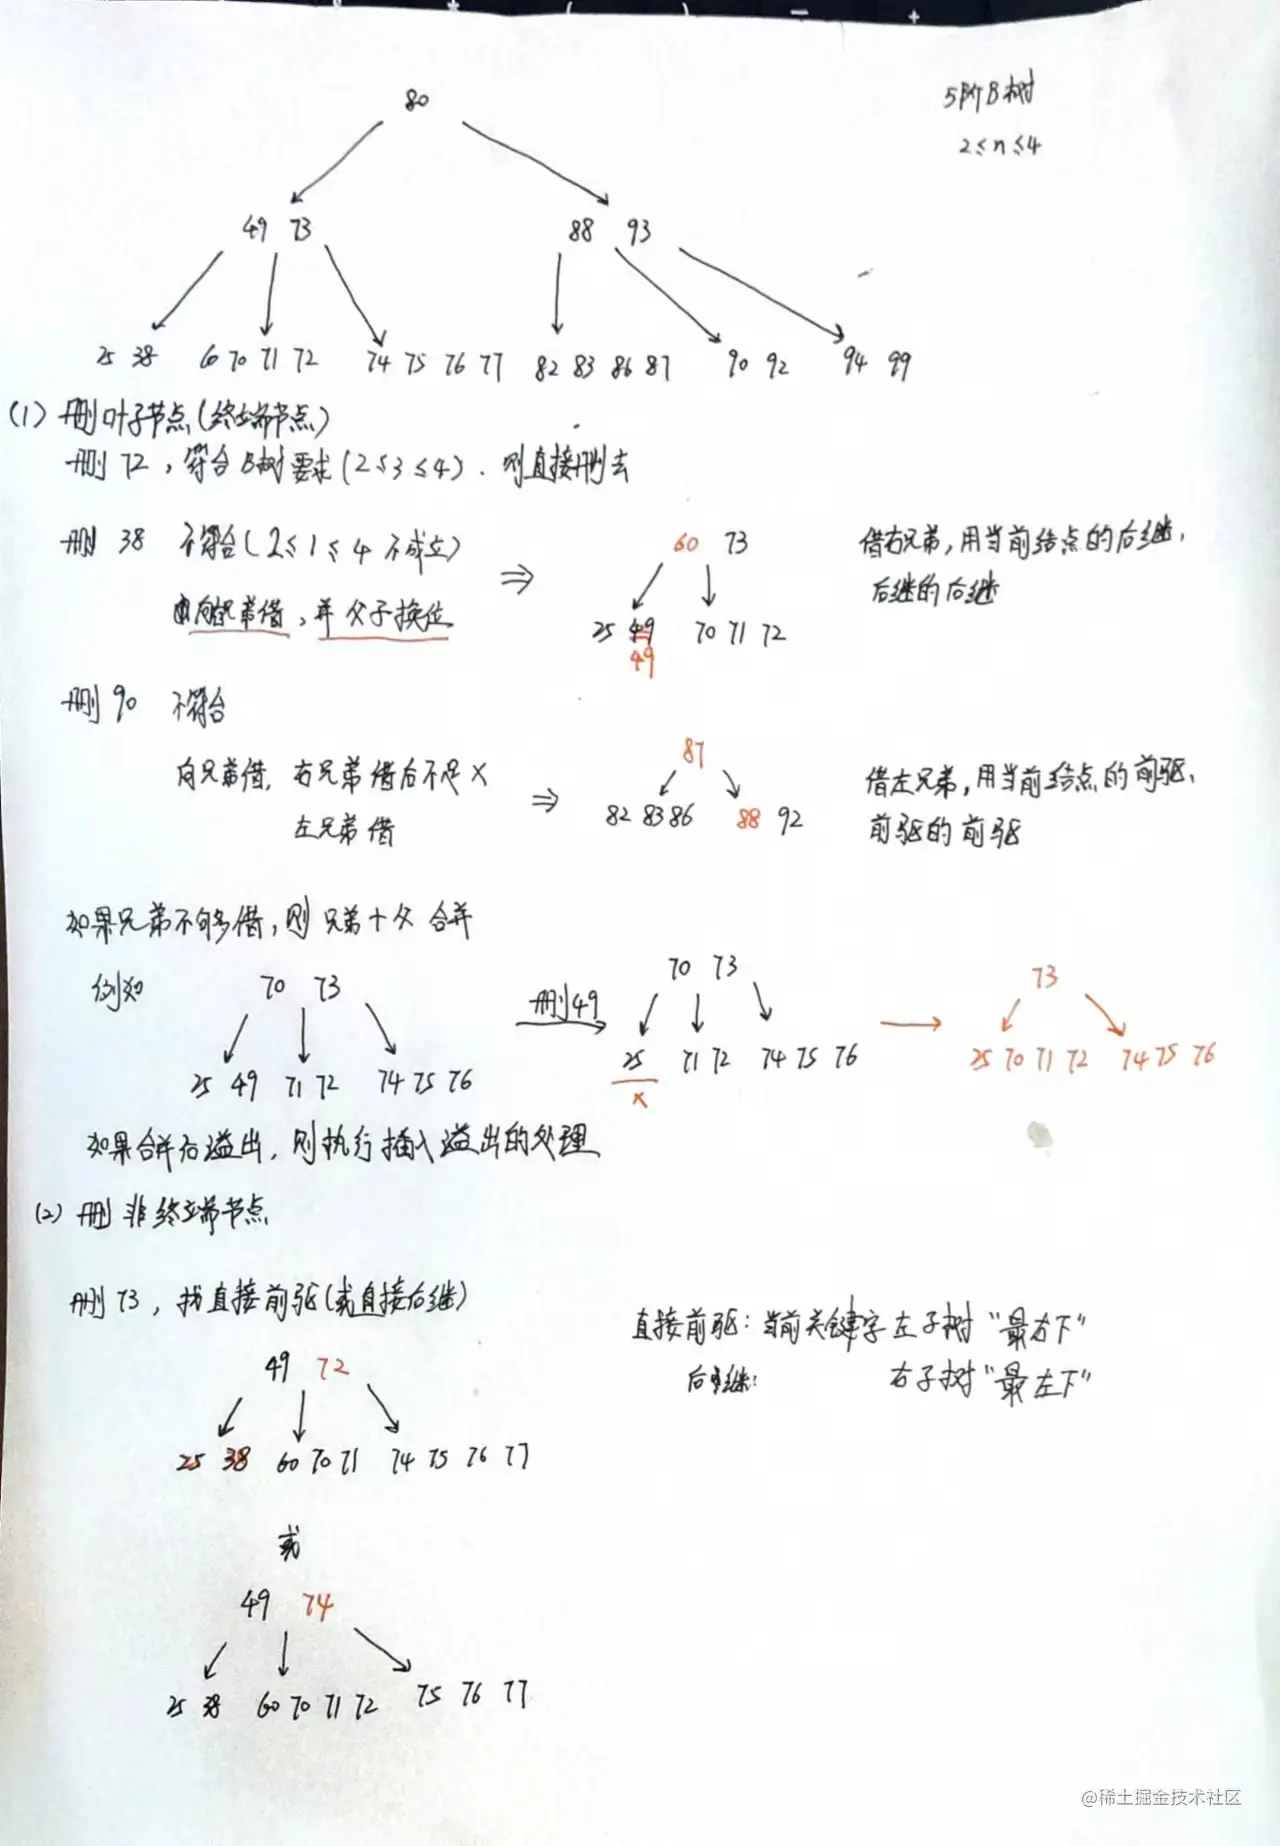 80
5阶B树
2≤n≤4
49 73 88 93
25 38 60 70 71 72 74 75 76 77 82 83 86 87 90 92 94 99
(1) 删叶子节点(终端节点)
删72，符合B树要求(2≤3≤4)．则直接删去
删 38 不符合(2≤1≤4 不成立)
向兄弟借，并 父子换位
⇒
60 73
25 49 70 71 72
49
借右兄弟，用当前结点的后继、
后继的后继
删 90 不符合
向兄弟借，右兄弟借后不足 ×
左兄弟借
⇒
87
82 83 86 88 92
借左兄弟，用当前结点的前驱、
前驱的前驱
如果兄弟不够借，则 兄弟+父 合并
例如
70 73
25 49 71 72 74 75 76
删49
70 73
25 71 72 74 75 76
×
73
25 70 71 72 74 75 76
如果合并后溢出，则执行插入溢出的处理
(2) 删 非终端节点
删73，找直接前驱(或直接后继)
直接前驱：当前关键字左子树“最右下”
后继： 右子树“最左下”
49 72
25 38 60 70 71 74 75 76 77
或
49 74
25 38 60 70 71 72 75 76 77
@稀土掘金技术社区